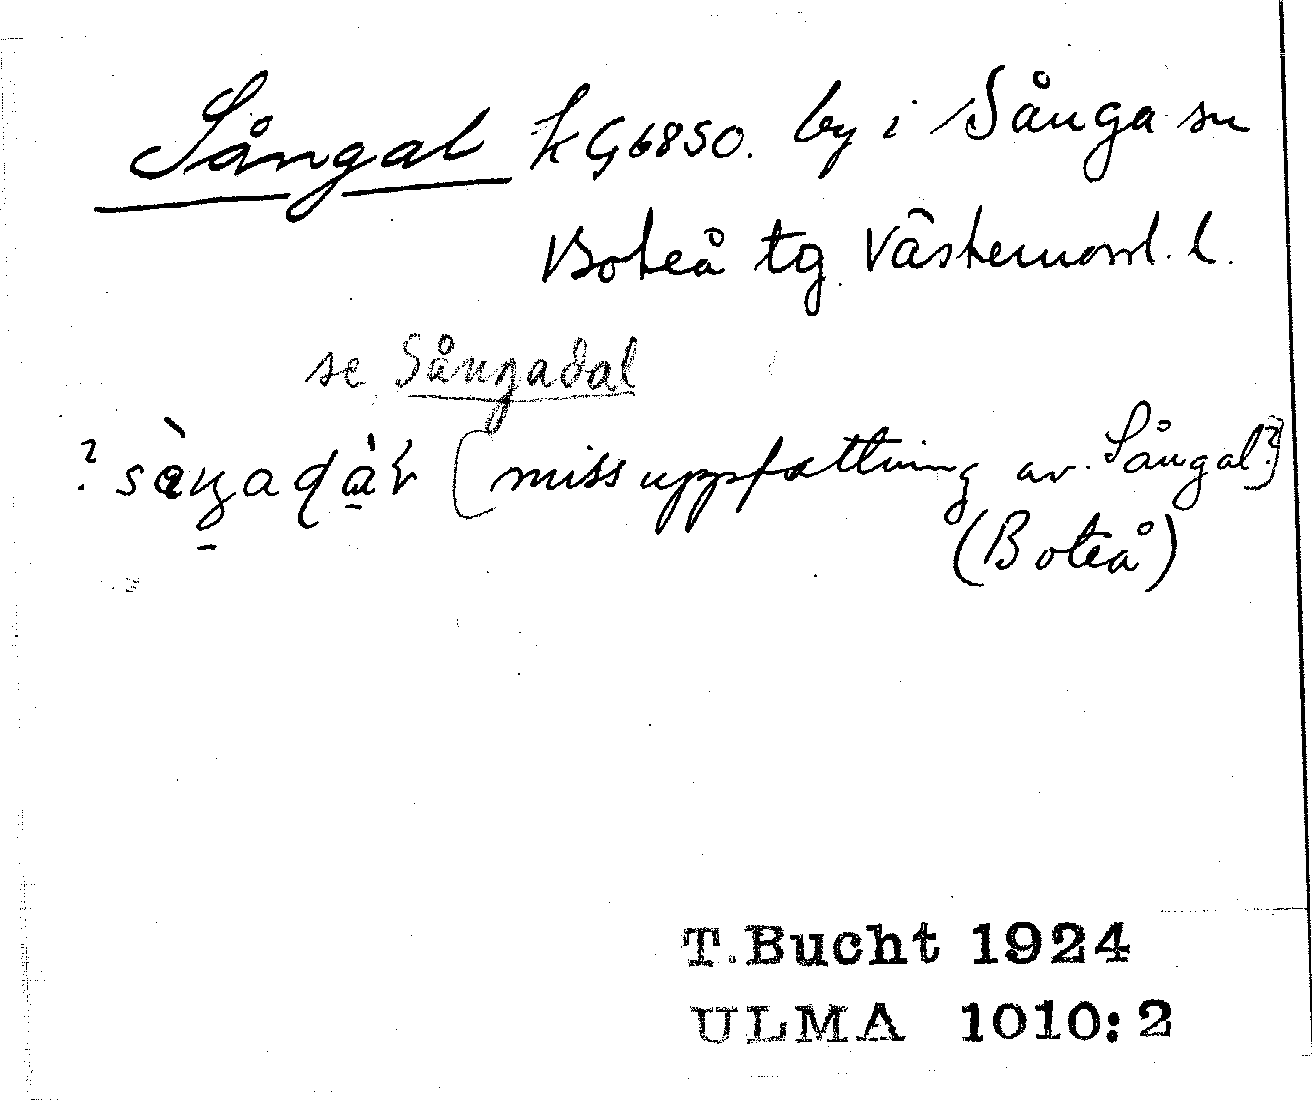 Sångal KG6850. by i Sånga sn
Boteå tg Västernorrl. l.
se Sångadal
? (missuppfattning av Sångal?)
(Boteå)
T. Bucht 1924
ULMA 1010:2